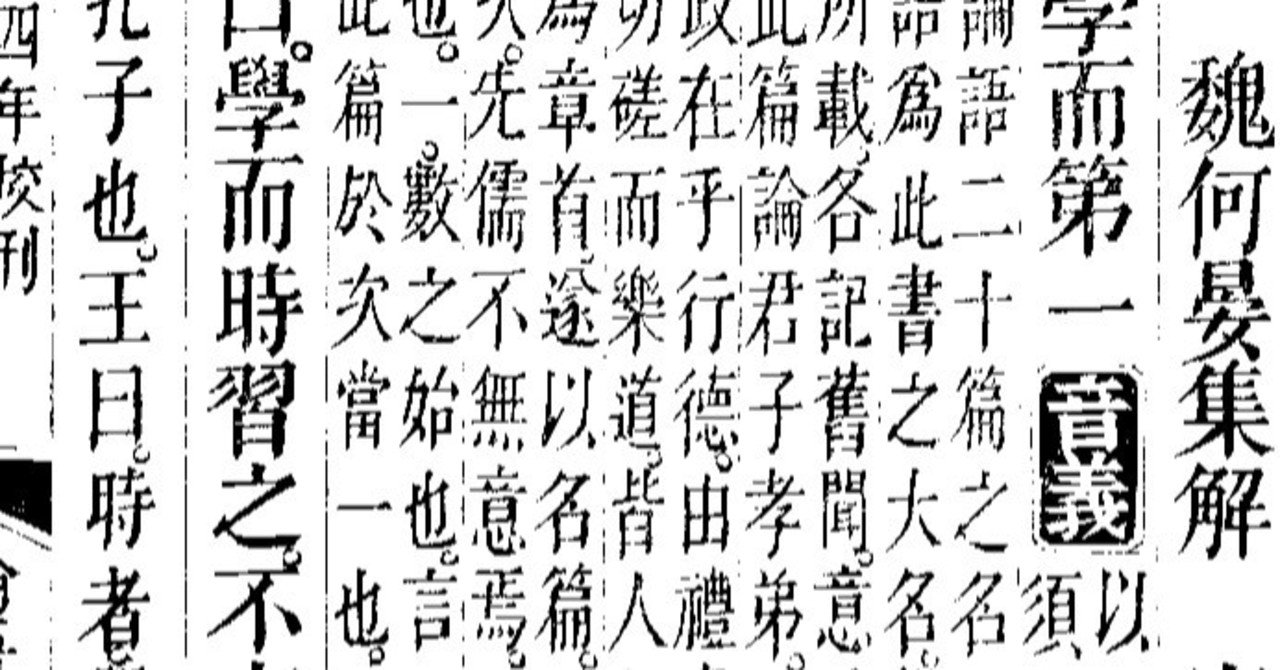 魏何晏集解
學而第一音義以
須
論語二十篇之名
語爲此書之大名。
所載各記舊聞。意
此篇論君子孝弟。
政在乎行德。由禮
切磋而樂道。皆人
爲章首。遂以名篇。
次。先儒不無意焉。
也。一。數之始也。言
此篇於次當一也。
曰。學而時習之。不
孔子也。王曰。時者。
四年校刊